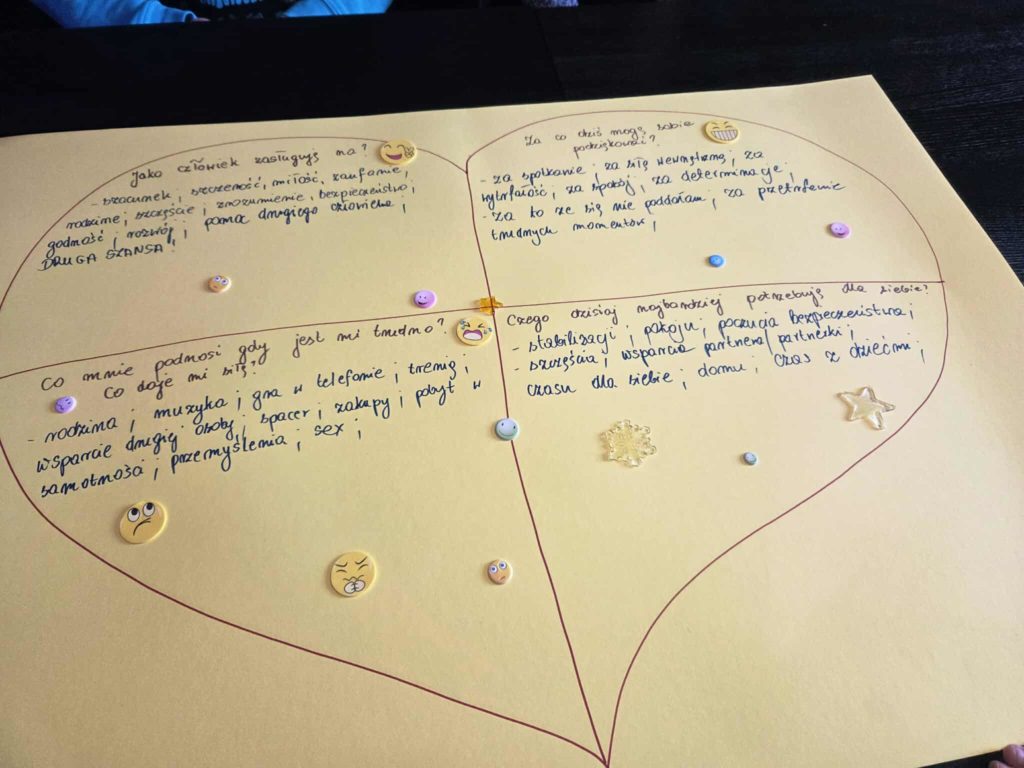 Jako człowiek zasługuję na?
- szacunek, szczerość, miłość, zaufanie,
rodzinę; szczęście; zrozumienie, bezpieczeństwo;
godność; rozwój; pomoc drugiego człowieka;
DRUGA SZANSA!
Za co dziś mogę sobie
podziękować?
- za spotkanie; za siłę wewnętrzną; za
wytrwałość; za spokój; za determinację;
- za to że się nie poddałam; za przetrwanie
trudnych momentów;
Co mnie podnosi gdy jest mi trudno?
Co daje mi siłę?
- rodzina; muzyka; gra w telefonie; trening;
wsparcie drugiej osoby; spacer; zakupy; pobyt w
samotności; przemyślenia; sex;
Czego dzisiaj najbardziej potrzebuję dla siebie?
- stabilizacji; pokoju; poczucia bezpieczeństwa;
- szczęścia; wsparcia partnera/partnerki;
czasu dla siebie; domu; czas z dziećmi;